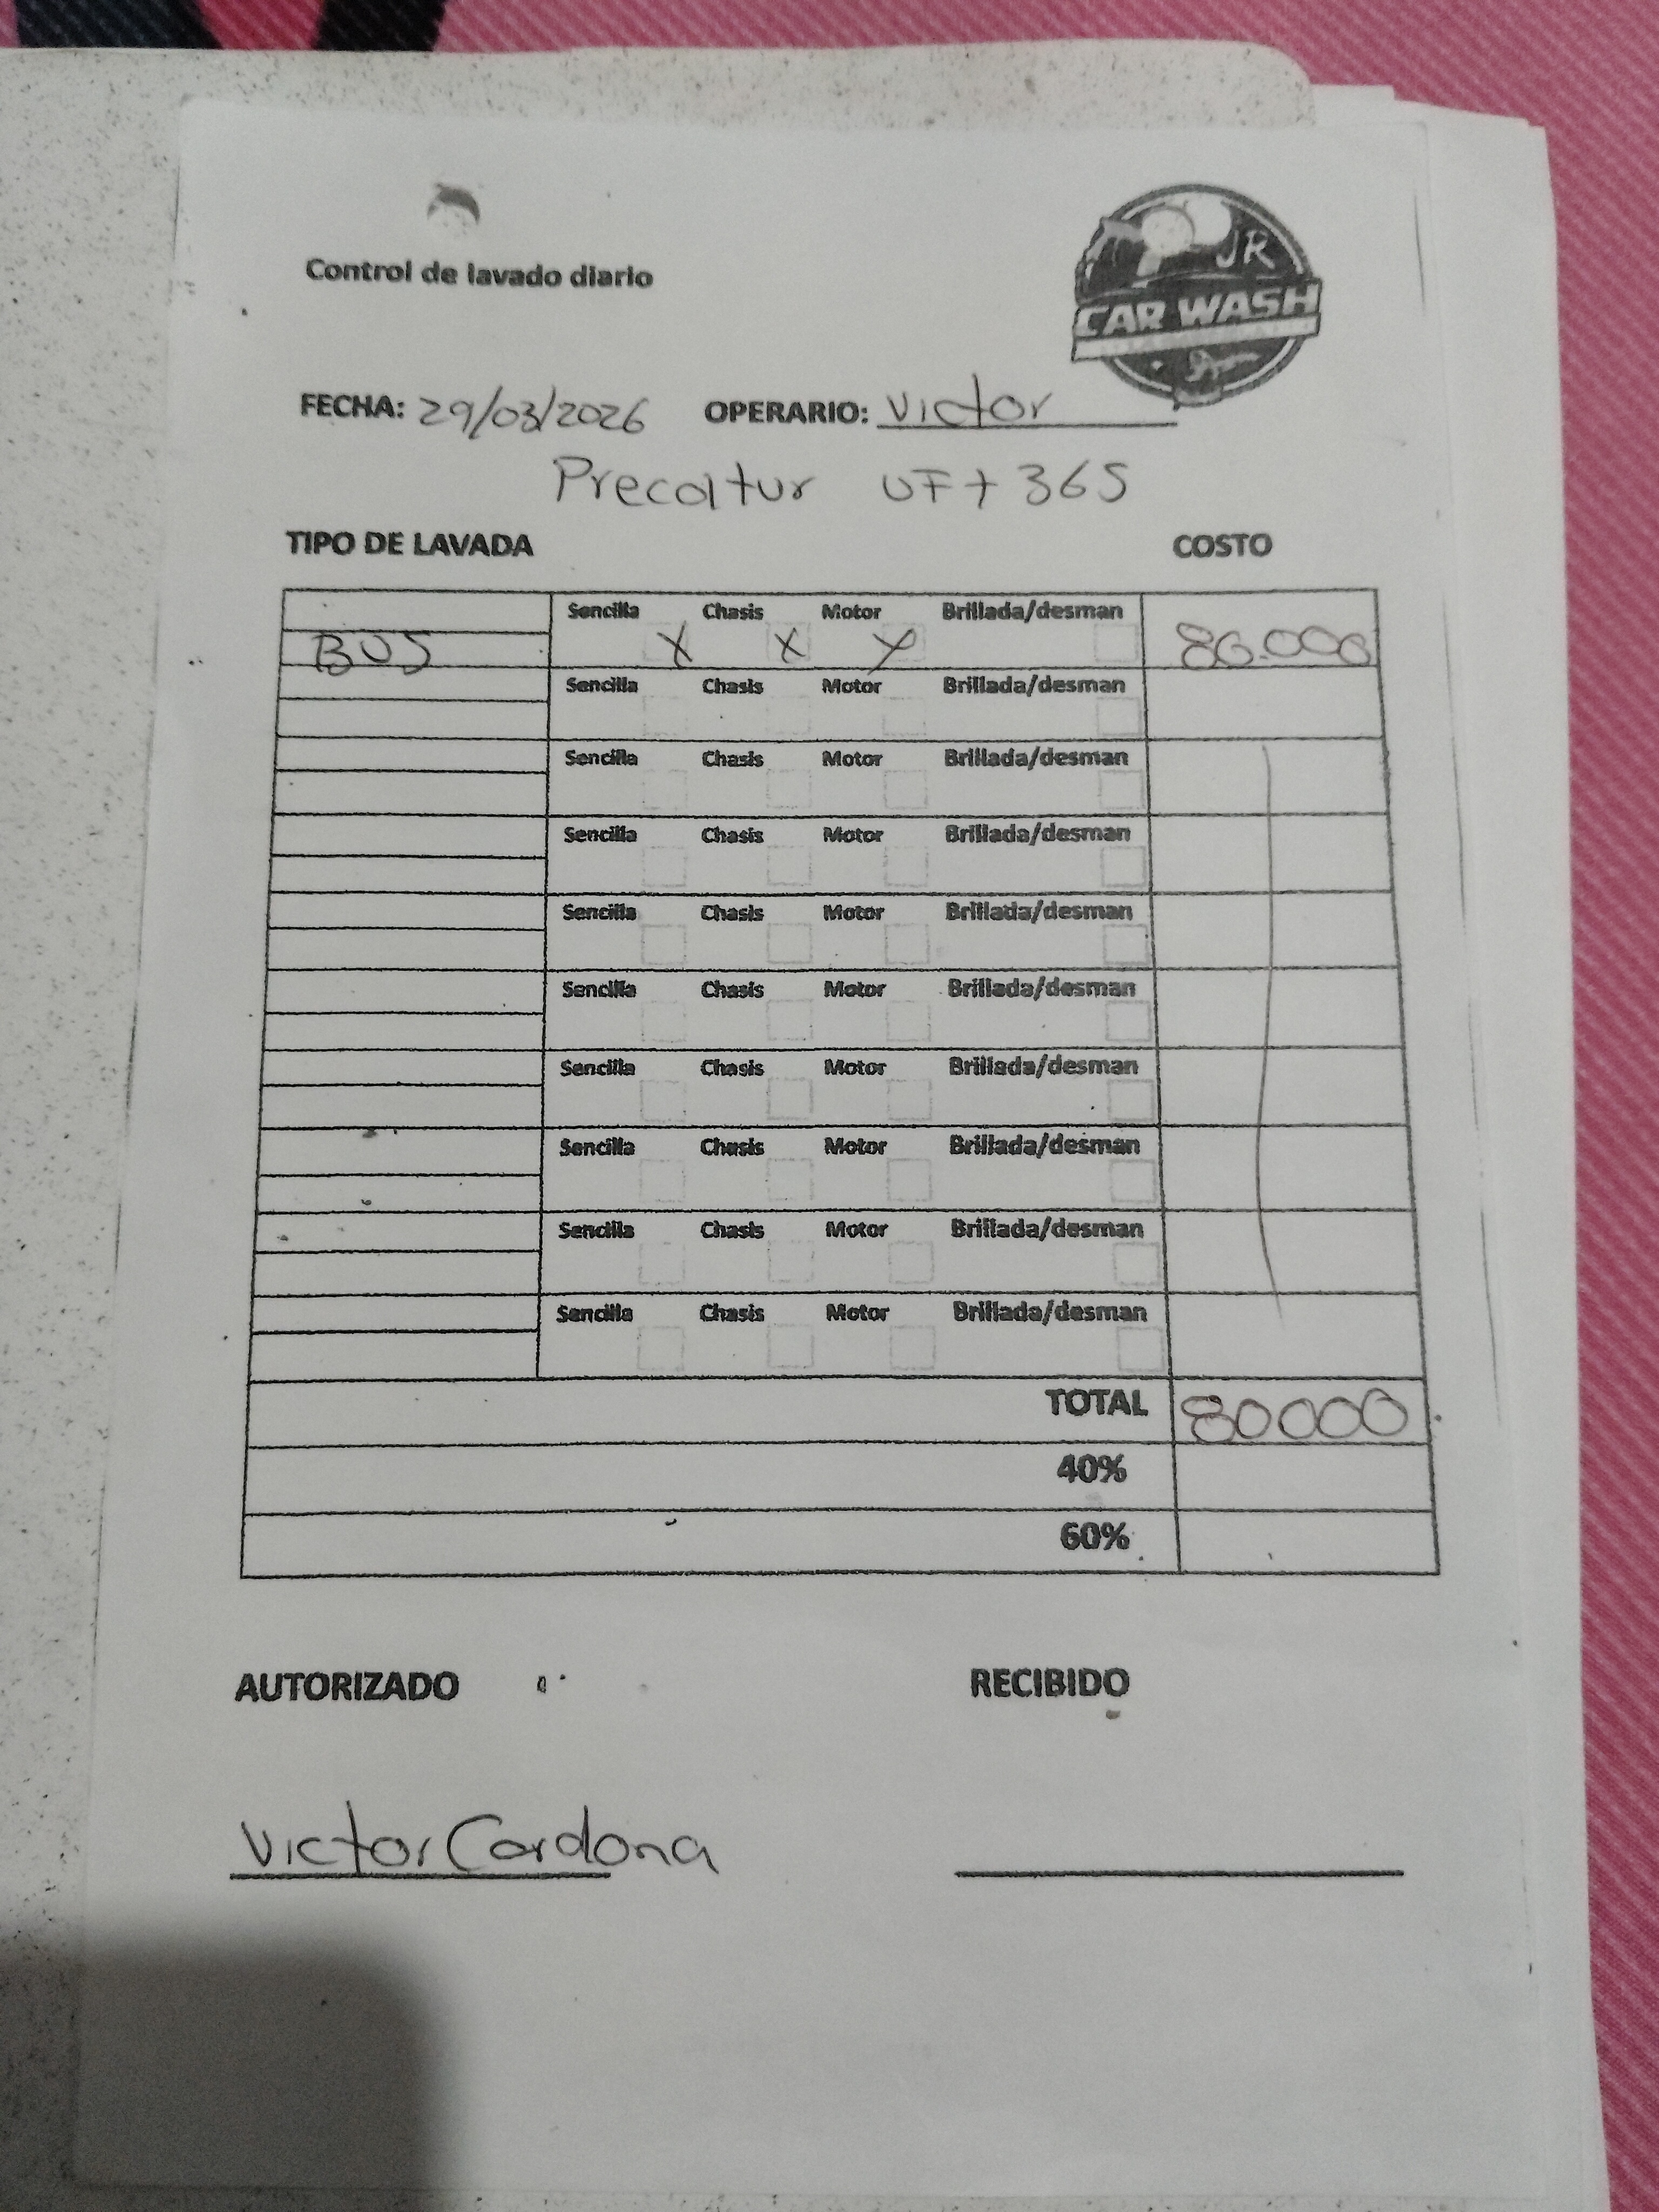 Control de lavado diario
JR
CAR WASH
FECHA: 29/03/2026 OPERARIO: Victor
Precoltur UFt 365
TIPO DE LAVADA COSTO
Sencilla Chasis Motor Brillada/desman
BUS X X X 80.000
Sencilla Chasis Motor Brillada/desman
Sencilla Chasis Motor Brillada/desman
Sencilla Chasis Motor Brillada/desman
Sencilla Chasis Motor Brillada/desman
Sencilla Chasis Motor Brillada/desman
Sencilla Chasis Motor Brillada/desman
Sencilla Chasis Motor Brillada/desman
Sencilla Chasis Motor Brillada/desman
Sencilla Chasis Motor Brillada/desman
TOTAL 80000
40%
60%
AUTORIZADO RECIBIDO
Victor Cardona